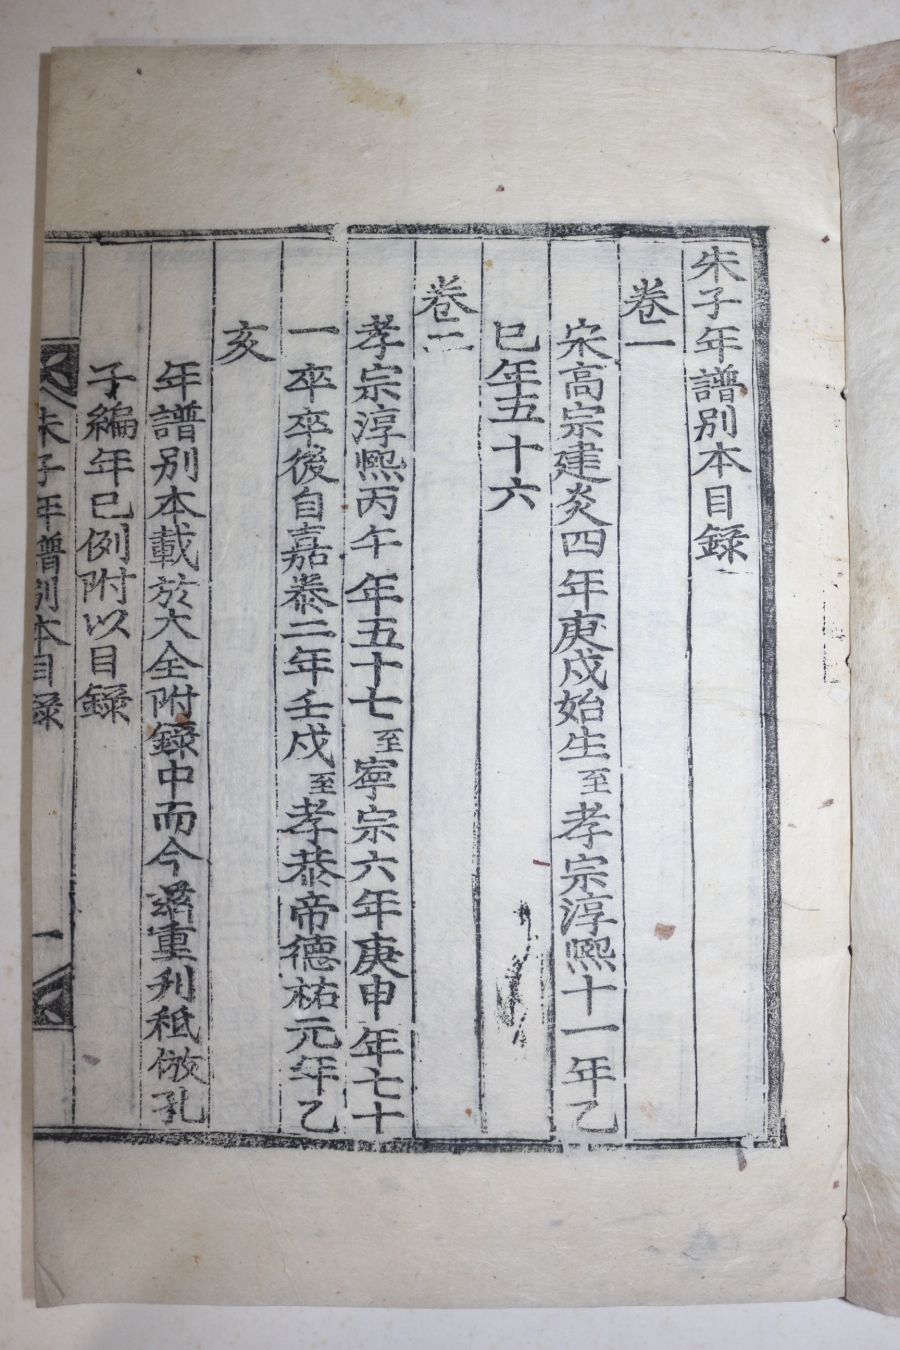 朱子年譜別本目錄
卷一
宋高宗建炎四年庚戌始生至孝宗淳熙十一年乙
巳年五十六
卷二
孝宗淳熙丙午年五十七至寧宗六年庚申年七十
一卒卒後自嘉泰二年壬戌至孝恭帝德祐元年乙
亥
年譜別本載於大全附錄中而今爲重刋秪倣孔
子編年已例附以目錄
朱子年譜別本目錄 一